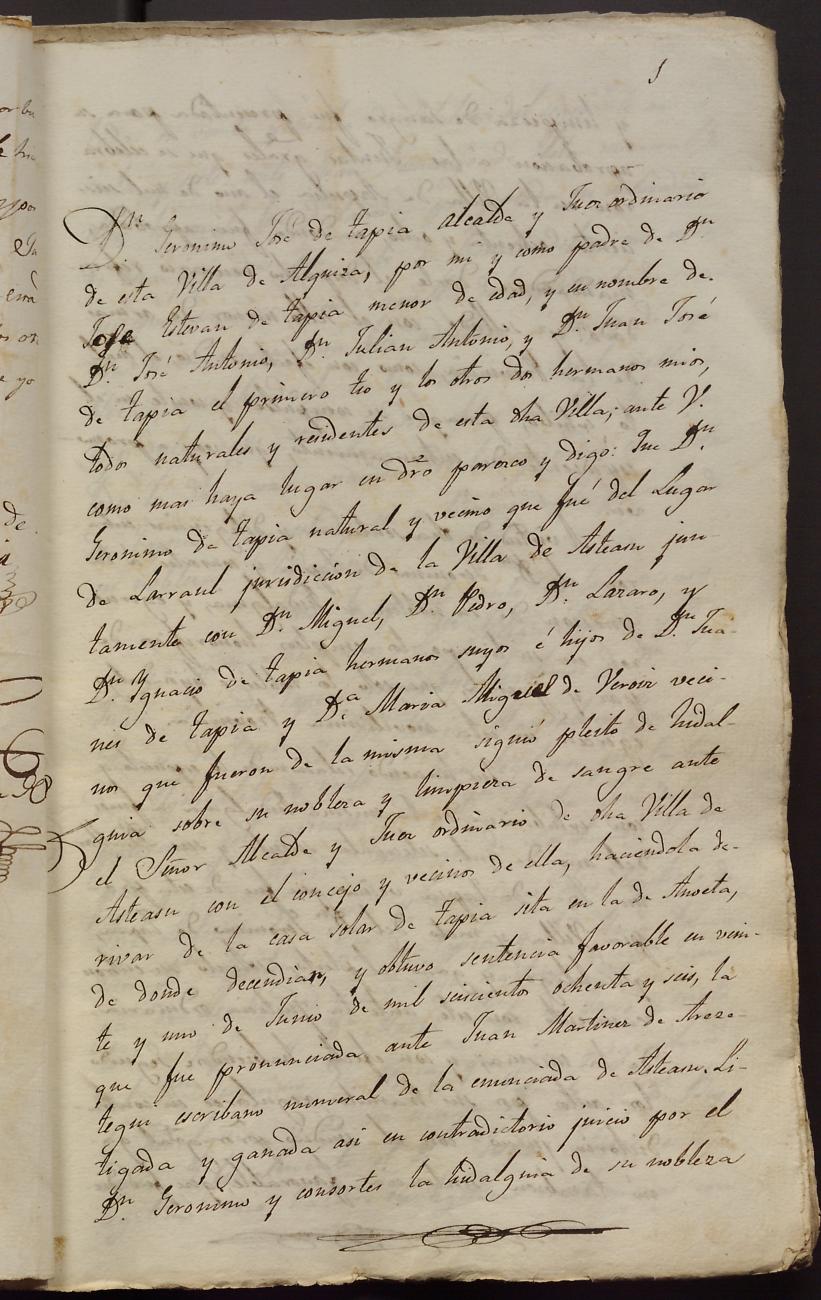 1
Dn. Geronimo José de tapia, alcalde y Juez ordinario
de esta Villa de Alquiza, por mi y como padre de Dn
Jose Estevan de tapia menor de edad, y en nombre de
Dn. José Antonio, Dn Julian Antonio, y Dn. Juan José
de tapia el primero tio y los otros dos hermanos mios,
todos naturales y residentes de esta dha Villa; ante V.
como mas haya lugar en dro parezco y digo: Que Dn.
Geronimo de tapia natural y vecino que fué del Lugar
de Larraul jurisdicion de la Villa de Asteasu jun-
tamente con Dn. Miguel, Dn Pedro, Dn. Lazaro, y
Dn Ygnacio de tapia hermanos suyos é hijos de Dn. Jua-
nes de tapia y Da. Maria Miguel de Veroiz veci-
nos que fueron de la misma siguió pleito de hidal-
guia sobre su nobleza y limpieza de sangre ante
el Señor Alcalde y Juez ordinario de dha Villa de
Asteasu con el concejo y vecinos de ella, haciendola de-
rivar de la casa solar de tapia sita en la de Anoeta,
de donde decendian, y obtuvo sentencia favorable en vein-
te y uno de Junio de mil seiscientos ochenta y seis, la
que fue pronunciada ante Juan Martinez de Areze-
tegui escribano numeral de la enunciada de Asteasu. Li-
tigada y ganada asi en contradictorio juicio por el
Dn. Geronimo y consortes la hidalguia de su nobleza